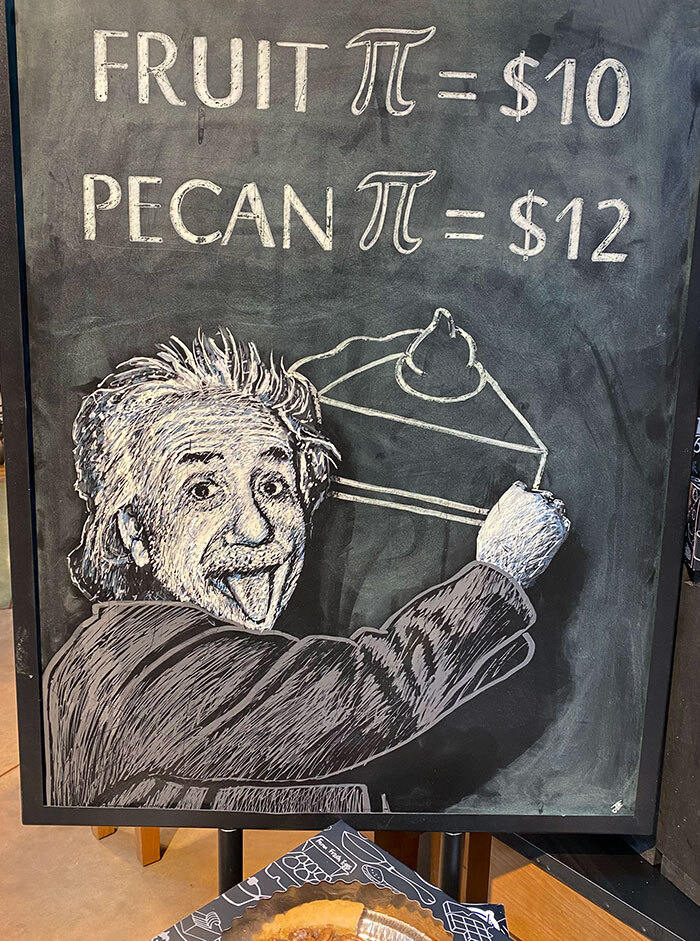 FRUIT π = $10
PECAN π = $12